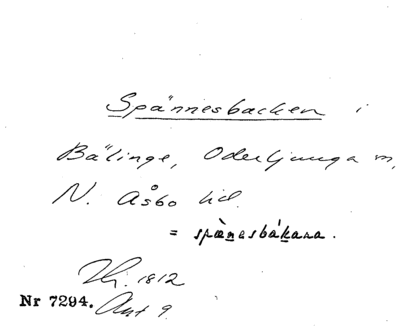 Spännesbacken i
Bälinge, Oderljunga sn,
N. Åsbo hd.
= spänesbákana.
1812
Nr 7294. Ant 9.